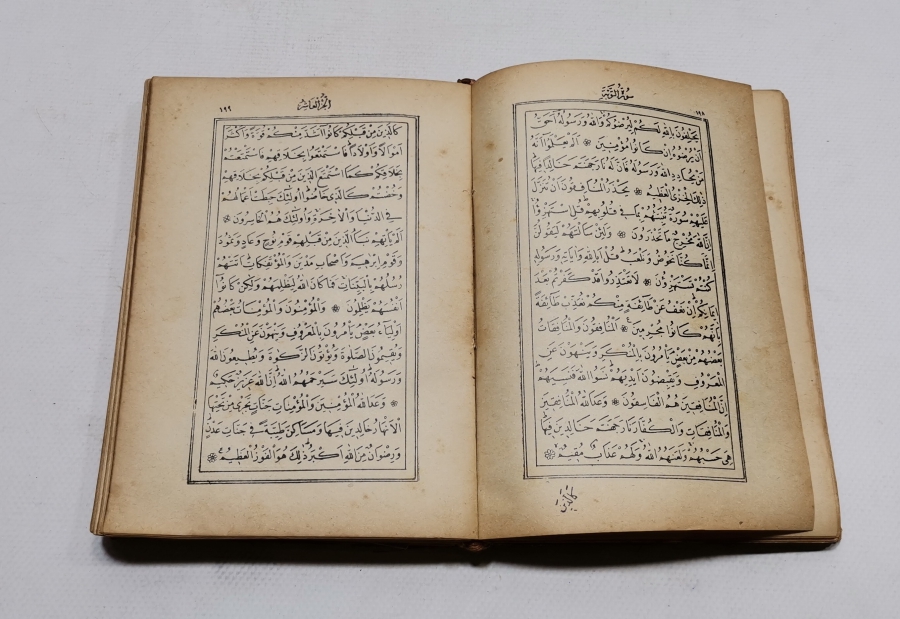 ١٩٨
سُورَةُ التَّوْبَةِ
يَحْلِفُونَ بِاللّٰهِ لَكُمْ لِيُرْضُوكُمْ وَاللّٰهُ وَرَسُولُهُٓ اَحَقُّ
اَنْ يُرْضُوهُ اِنْ كَانُوا مُؤْمِنِينَ ❋ اَلَمْ يَعْلَمُٓوا اَنَّهُ
مَنْ يُحَادِدِ اللّٰهَ وَرَسُولَهُ فَاَنَّ لَهُ نَارَ جَهَنَّمَ خَالِدًا فِيهَا
ذٰلِكَ الْخِزْيُ الْعَظِيمُ ❋ يَحْذَرُ الْمُنَافِقُونَ اَنْ تُنَزَّلَ
عَلَيْهِمْ سُورَةٌ تُنَبِّئُهُمْ بِمَا فِي قُلُوبِهِمْ قُلِ اسْتَهْزِؤُا
اِنَّ اللّٰهَ مُخْرِجٌ مَا تَحْذَرُونَ ❋ وَلَئِنْ سَاَلْتَهُمْ لَيَقُولُنَّ
اِنَّمَا كُنَّا نَخُوضُ وَنَلْعَبُ قُلْ اَبِاللّٰهِ وَاٰيَاتِهِ وَرَسُولِهِ
كُنْتُمْ تَسْتَهْزِؤُنَ ❋ لَا تَعْتَذِرُوا قَدْ كَفَرْتُمْ بَعْدَ
اِيمَانِكُمْ اِنْ نَعْفُ عَنْ طَائِفَةٍ مِنْكُمْ نُعَذِّبْ طَائِفَةً
بِاَنَّهُمْ كَانُوا مُجْرِمِينَ ❋ اَلْمُنَافِقُونَ وَالْمُنَافِقَاتُ
بَعْضُهُمْ مِنْ بَعْضٍ يَاْمُرُونَ بِالْمُنْكَرِ وَيَنْهَوْنَ عَنِ
الْمَعْرُوفِ وَيَقْبِضُونَ اَيْدِيَهُمْ نَسُوا اللّٰهَ فَنَسِيَهُمْ
اِنَّ الْمُنَافِقِينَ هُمُ الْفَاسِقُونَ ❋ وَعَدَ اللّٰهُ الْمُنَافِقِينَ
وَالْمُنَافِقَاتِ وَالْكُفَّارَ نَارَ جَهَنَّمَ خَالِدِينَ فِيهَا
هِيَ حَسْبُهُمْ وَلَعَنَهُمُ اللّٰهُ وَلَهُمْ عَذَابٌ مُقِيمٌ ❋
كَالَّذِينَ
اَلْجُزْءُ الْعَاشِرُ
١٩٩
كَالَّذِينَ مِنْ قَبْلِكُمْ كَانُوا اَشَدَّ مِنْكُمْ قُوَّةً وَاَكْثَرَ
اَمْوَالًا وَاَوْلَادًا فَاسْتَمْتَعُوا بِخَلَاقِهِمْ فَاسْتَمْتَعْتُمْ
بِخَلَاقِكُمْ كَمَا اسْتَمْتَعَ الَّذِينَ مِنْ قَبْلِكُمْ بِخَلَاقِهِمْ
وَخُضْتُمْ كَالَّذِي خَاضُوا اُولٰئِكَ حَبِطَتْ اَعْمَالُهُمْ
فِي الدُّنْيَا وَالْاٰخِرَةِ وَاُولٰئِكَ هُمُ الْخَاسِرُونَ ❋
اَلَمْ يَاْتِهِمْ نَبَاُ الَّذِينَ مِنْ قَبْلِهِمْ قَوْمِ نُوحٍ وَعَادٍ وَثَمُودَ
وَقَوْمِ اِبْرٰهِيمَ وَاَصْحَابِ مَدْيَنَ وَالْمُؤْتَفِكَاتِ اَتَتْهُمْ
رُسُلُهُمْ بِالْبَيِّنَاتِ فَمَا كَانَ اللّٰهُ لِيَظْلِمَهُمْ وَلٰكِنْ كَانُوا
اَنْفُسَهُمْ يَظْلِمُونَ ❋ وَالْمُؤْمِنُونَ وَالْمُؤْمِنَاتُ بَعْضُهُمْ
اَوْلِيَاءُ بَعْضٍ يَاْمُرُونَ بِالْمَعْرُوفِ وَيَنْهَوْنَ عَنِ الْمُنْكَرِ
وَيُقِيمُونَ الصَّلٰوةَ وَيُؤْتُونَ الزَّكٰوةَ وَيُطِيعُونَ اللّٰهَ
وَرَسُولَهُ اُولٰئِكَ سَيَرْحَمُهُمُ اللّٰهُ اِنَّ اللّٰهَ عَزِيزٌ حَكِيمٌ
❋ وَعَدَ اللّٰهُ الْمُؤْمِنِينَ وَالْمُؤْمِنَاتِ جَنَّاتٍ تَجْرِي مِنْ تَحْتِهَا
الْاَنْهَارُ خَالِدِينَ فِيهَا وَمَسَاكِنَ طَيِّبَةً فِي جَنَّاتِ عَدْنٍ
وَرِضْوَانٌ مِنَ اللّٰهِ اَكْبَرُ ذٰلِكَ هُوَ الْفَوْزُ الْعَظِيمُ ❋